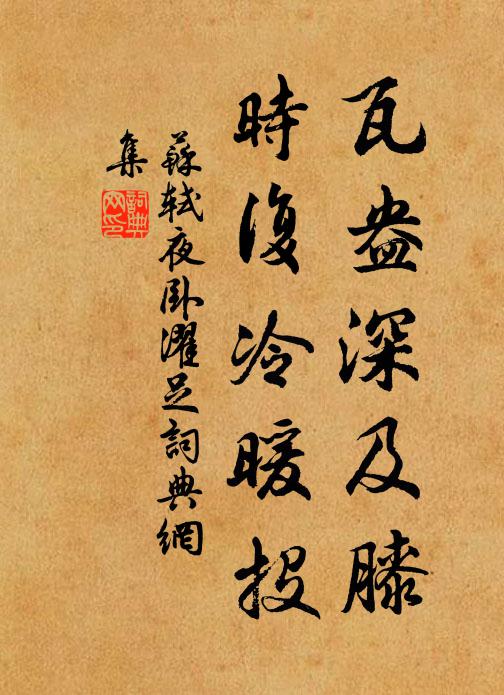 瓦盎深及膝
時復冷暖投
蘇軾夜卧濯足詞典網
集
詞典網印